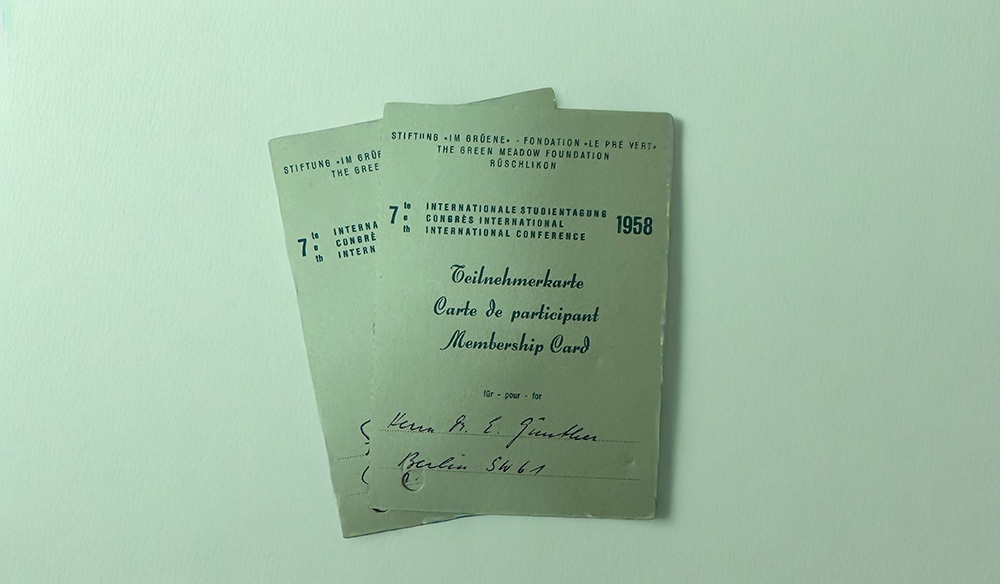 STIFTUNG «IM GRÜENE» - FONDATION «LE PRÉ VERT»
THE GREEN MEADOW FOUNDATION
RÜSCHLIKON
7 te e th
INTERNATIONALE STUDIENTAGUNG
CONGRÈS INTERNATIONAL
INTERNATIONAL CONFERENCE
1958
Teilnehmerkarte
Carte de participant
Membership Card
für - pour - for
Herrn Dr. E. Günther
Berlin SW 61
STIFTUNG «IM GRÜE
THE GREE
7 te e th
INTERNA
CONGRÈ
INTERN